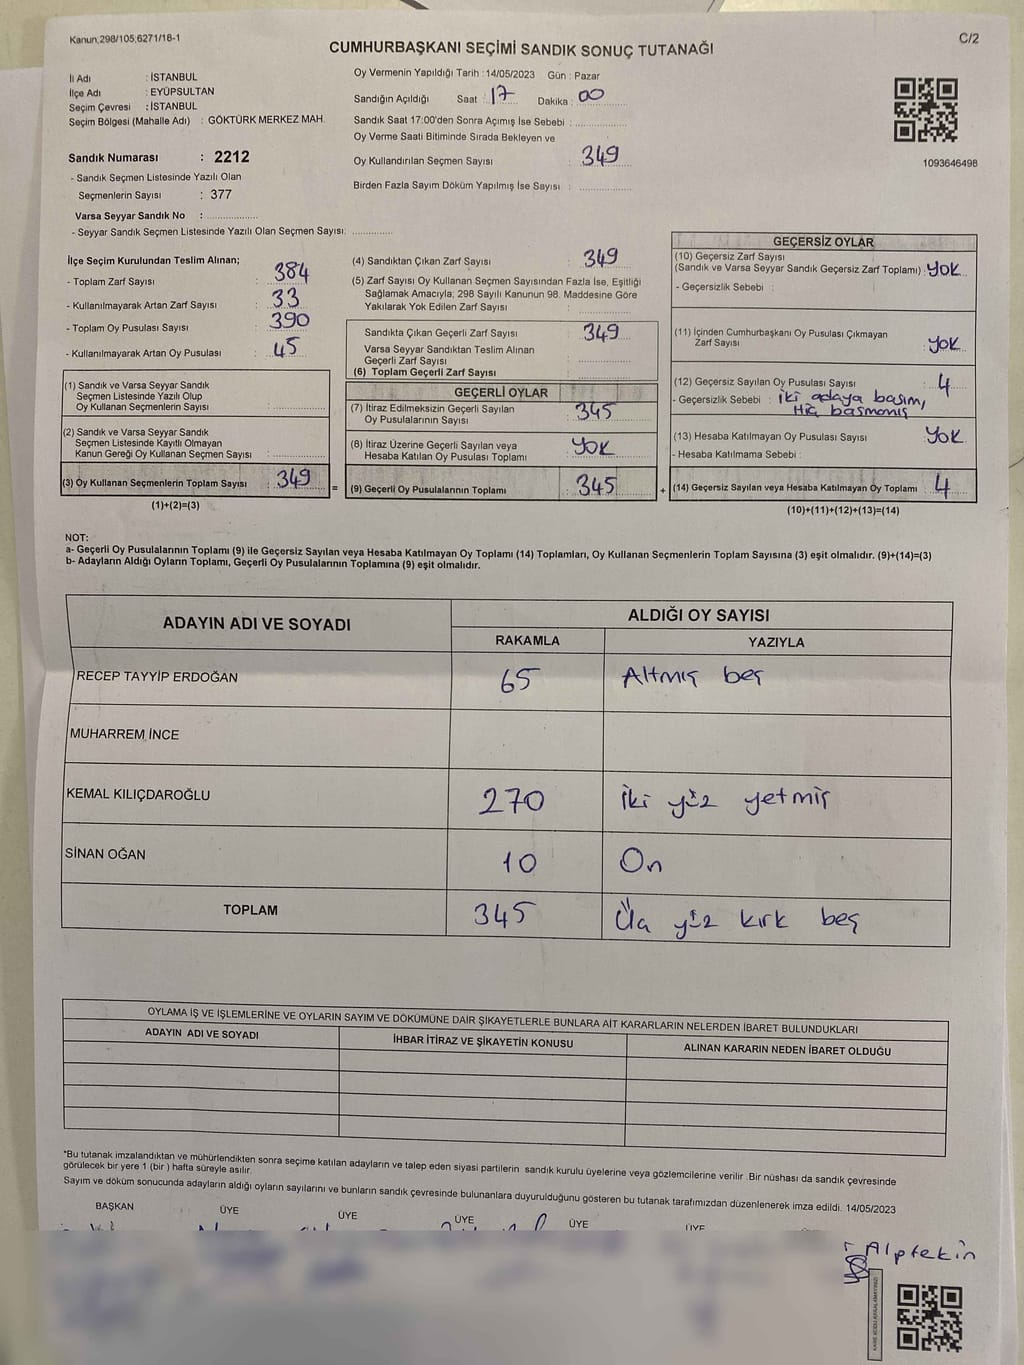 Kanun,298/105,6271/18-1
C/2
CUMHURBAŞKANI SEÇİMİ SANDIK SONUÇ TUTANAĞI
İl Adı : İSTANBUL
İlçe Adı : EYÜPSULTAN
Seçim Çevresi : İSTANBUL
Seçim Bölgesi (Mahalle Adı) : GÖKTÜRK MERKEZ MAH.
Sandık Numarası : 2212
- Sandık Seçmen Listesinde Yazılı Olan
Seçmenlerin Sayısı : 377
Varsa Seyyar Sandık No :
- Seyyar Sandık Seçmen Listesinde Yazılı Olan Seçmen Sayısı:
Oy Vermenin Yapıldığı Tarih : 14/05/2023 Gün : Pazar
Sandığın Açıldığı Saat : 17 Dakika : 00
Sandık Saat 17:00'den Sonra Açımış İse Sebebi :
Oy Verme Saati Bitiminde Sırada Bekleyen ve
Oy Kullandırılan Seçmen Sayısı : 349
Birden Fazla Sayım Döküm Yapılmış İse Sayısı :
1093646498
İlçe Seçim Kurulundan Teslim Alınan;
- Toplam Zarf Sayısı : 384
- Kullanılmayarak Artan Zarf Sayısı : 33
- Toplam Oy Pusulası Sayısı : 390
- Kullanılmayarak Artan Oy Pusulası : 45
(1) Sandık ve Varsa Seyyar Sandık
Seçmen Listesinde Yazılı Olup
Oy Kullanan Seçmenlerin Sayısı :
(2) Sandık ve Varsa Seyyar Sandık
Seçmen Listesinde Kayıtlı Olmayan
Kanun Gereği Oy Kullanan Seçmen Sayısı :
(3) Oy Kullanan Seçmenlerin Toplam Sayısı : 349
(1)+(2)=(3)
=
(4) Sandıktan Çıkan Zarf Sayısı : 349
(5) Zarf Sayısı Oy Kullanan Seçmen Sayısından Fazla İse, Eşitliği
Sağlamak Amacıyla; 298 Sayılı Kanunun 98. Maddesine Göre
Yakılarak Yok Edilen Zarf Sayısı :
Sandıkta Çıkan Geçerli Zarf Sayısı : 349
Varsa Seyyar Sandıktan Teslim Alınan
Geçerli Zarf Sayısı :
(6) Toplam Geçerli Zarf Sayısı :
GEÇERLİ OYLAR
(7) İtiraz Edilmeksizin Geçerli Sayılan
Oy Pusulalarının Sayısı : 345
(8) İtiraz Üzerine Geçerli Sayılan veya
Hesaba Katılan Oy Pusulası Toplamı : YOK
(9) Geçerli Oy Pusulalarının Toplamı : 345
+
GEÇERSİZ OYLAR
(10) Geçersiz Zarf Sayısı
(Sandık ve Varsa Seyyar Sandık Geçersiz Zarf Toplamı) : YOK
- Geçersizlik Sebebi :
(11) İçinden Cumhurbaşkanı Oy Pusulası Çıkmayan
Zarf Sayısı : YOK
(12) Geçersiz Sayılan Oy Pusulası Sayısı : 4
- Geçersizlik Sebebi : İki adaya basım,
Hiç basmamış
(13) Hesaba Katılmayan Oy Pusulası Sayısı : YOK
- Hesaba Katılmama Sebebi :
(14) Geçersiz Sayılan veya Hesaba Katılmayan Oy Toplamı : 4
(10)+(11)+(12)+(13)=(14)
NOT:
a- Geçerli Oy Pusulalarının Toplamı (9) ile Geçersiz Sayılan veya Hesaba Katılmayan Oy Toplamı (14) Toplamları, Oy Kullanan Seçmenlerin Toplam Sayısına (3) eşit olmalıdır. (9)+(14)=(3)
b- Adayların Aldığı Oyların Toplamı, Geçerli Oy Pusulalarının Toplamına (9) eşit olmalıdır.
ADAYIN ADI VE SOYADI
ALDIĞI OY SAYISI
RAKAMLA YAZIYLA
RECEP TAYYİP ERDOĞAN 65 Altmış beş
MUHARREM İNCE
KEMAL KILIÇDAROĞLU 270 İki yüz yetmiş
SİNAN OĞAN 10 On
TOPLAM 345 Üç yüz kırk beş
OYLAMA İŞ VE İŞLEMLERİNE VE OYLARIN SAYIM VE DÖKÜMÜNE DAİR ŞİKAYETLERLE BUNLARA AİT KARARLARIN NELERDEN İBARET BULUNDUKLARI
ADAYIN ADI VE SOYADI İHBAR İTİRAZ VE ŞİKAYETİN KONUSU ALINAN KARARIN NEDEN İBARET OLDUĞU
*Bu tutanak imzalandıktan ve mühürlendikten sonra seçime katılan adayların ve talep eden siyasi partilerin sandık kurulu üyelerine veya gözlemcilerine verilir .Bir nüshası da sandık çevresinde
görülecek bir yere 1 (bir ) hafta süreyle asılır.
Sayım ve döküm sonucunda adayların aldığı oyların sayılarını ve bunların sandık çevresinde bulunanlara duyurulduğunu gösteren bu tutanak tarafımızdan düzenlenerek imza edildi. 14/05/2023
BAŞKAN ÜYE ÜYE ÜYE ÜYE ÜYE
Alptekin